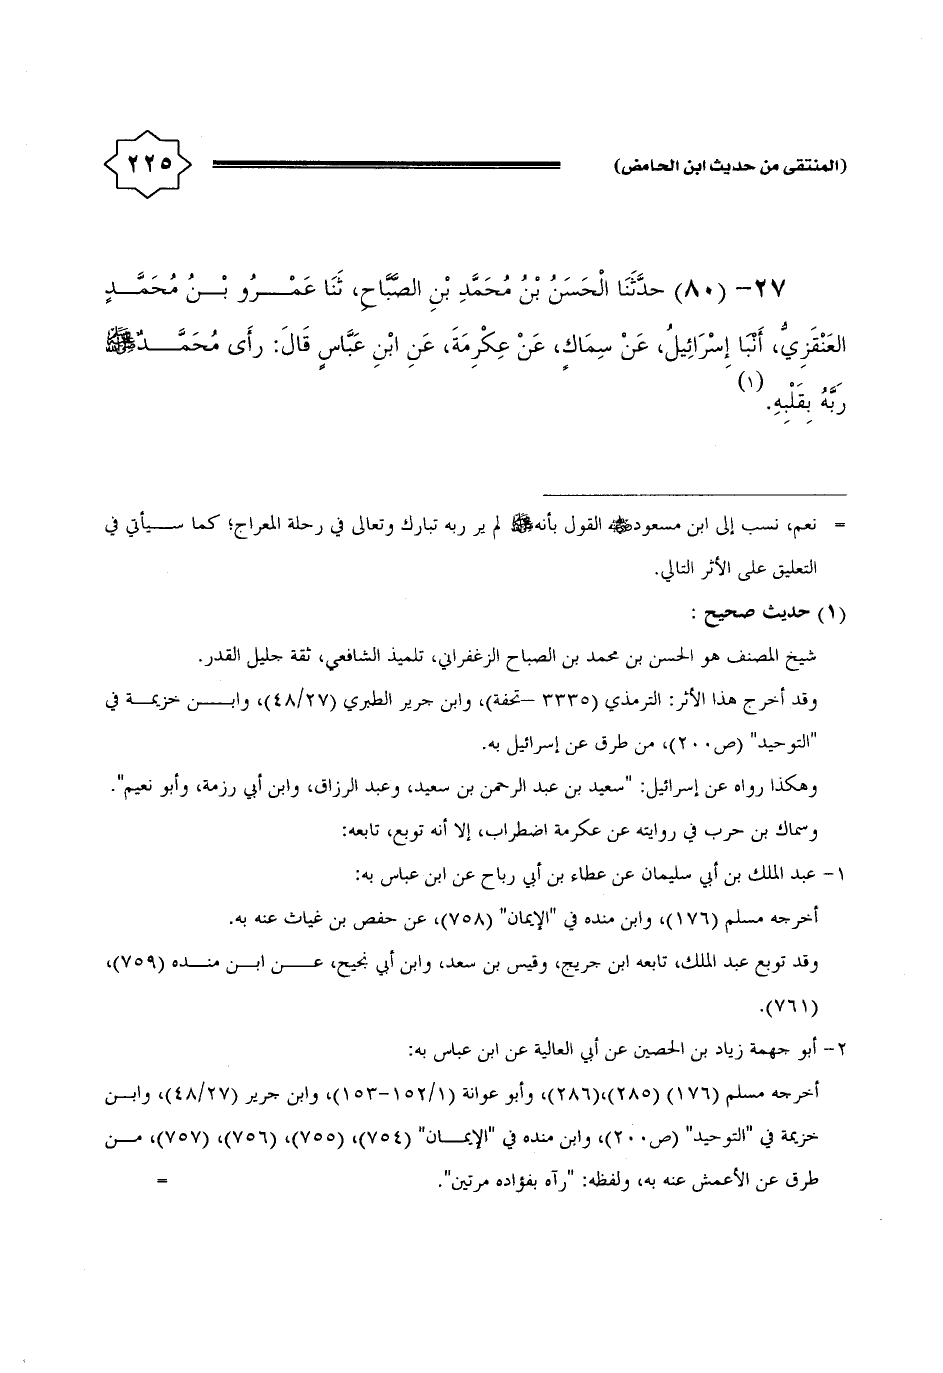 (المنتقى من حديث ابن الحامض)
٢٢٥
٢٧- (٨٠) حدَّثَنَا الْحَسَنُ بْنُ مُحَمَّدِ بْنِ الصَّبَّاحِ، ثَنَا عَمْـــرُو بْـــنُ مُحَمَّـــدٍ
العَنْقَزِيُّ، أَنْبَا إِسْرَائِيلُ، عَنْ سِمَاكٍ، عَنْ عِكْرِمَةَ، عَنِ ابْنِ عَبَّاسٍ قَالَ: رأَى مُحَمَّـــدٌ ﷺ
رَبَّهُ بِقَلْبِهِ. (١)
= نعم، نسب إلى ابن مسعود ﷺ القول بأنه ﷺ لم ير ربه تبارك وتعالى في رحلة المعراج؛ كما ســـيأتي في
التعليق على الأثر التالي.
(١) حديث صحيح :
شيخ المصنف هو الحسن بن محمد بن الصباح الزغفراني، تلميذ الشافعي، ثقة جليل القدر.
وقد أخرج هذا الأثر: الترمذي (٣٣٣٥ –تحفة)، وابن جرير الطبري (٤٨/٢٧)، وابـــن خزيمـــة في
"التوحيد" (ص٢٠٠)، من طرق عن إسرائيل به.
وهكذا رواه عن إسرائيل: "سعيد بن عبد الرحمن بن سعيد، وعبد الرزاق، وابن أبي رزمة، وأبو نعيم".
وسماك بن حرب في روايته عن عكرمة اضطراب، إلا أنه توبع، تابعه:
١- عبد الملك بن أبي سليمان عن عطاء بن أبي رباح عن ابن عباس به:
أخرجه مسلم (١٧٦)، وابن منده في "الإيمان" (٧٥٨)، عن حفص بن غياث عنه به.
وقد توبع عبد الملك، تابعه ابن جريج، وقيس بن سعد، وابن أبي نجيح، عـــن ابـــن منـــده (٧٥٩)،
(٧٦١).
٢- أبو جهمة زياد بن الحصين عن أبي العالية عن ابن عباس به:
أخرجه مسلم (١٧٦) (٢٨٥)،(٢٨٦)، وأبو عوانة (١٥٢/١-١٥٣)، وابن جرير (٤٨/٢٧)، وابـــن
خزيمة في "التوحيد" (ص٢٠٠)، وابن منده في "الإيمـــان" (٧٥٤)، (٧٥٥)، (٧٥٦)، (٧٥٧)، مـــن
طرق عن الأعمش عنه به، ولفظه: "رآه بفؤاده مرتين". =